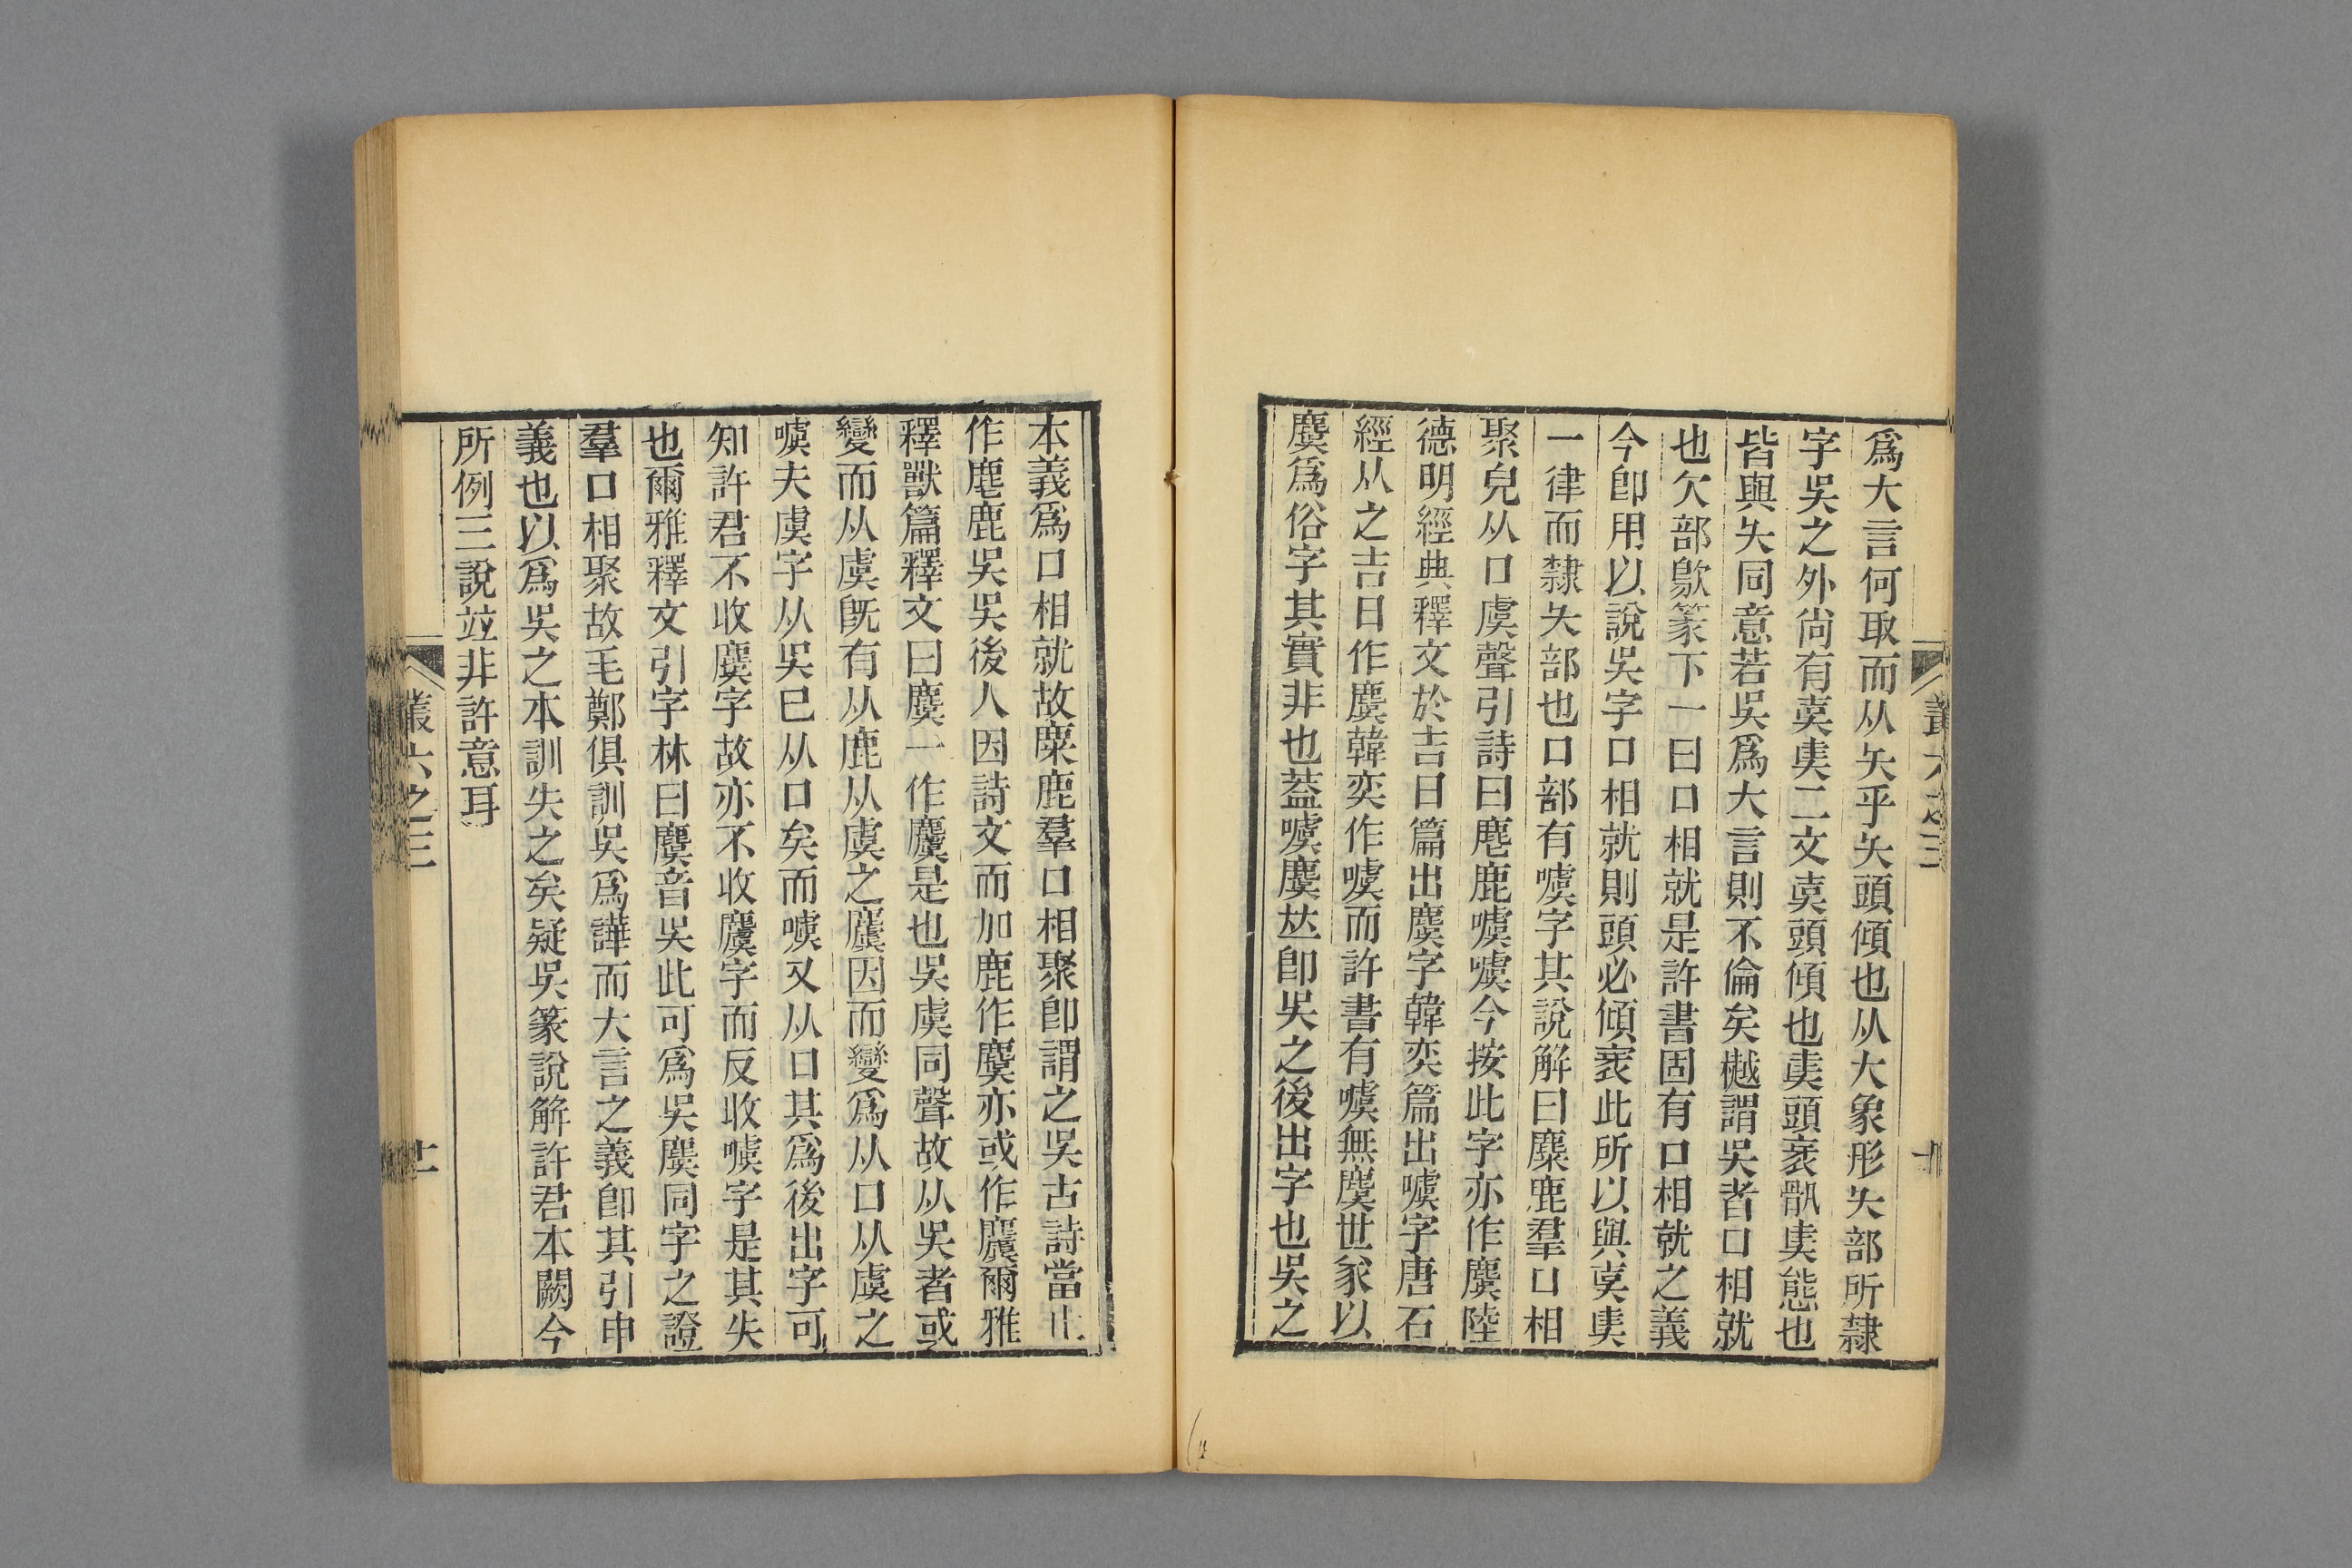 爲大言何取而从夨乎夨頭傾也从大象形夨部所隸
字吳之外尚有奊𡕢二文奊頭傾也𡕢頭衺骫𡕢態也
皆與夨同意若吳爲大言則不倫矣樾謂吳者口相就
也欠部歍篆下一曰口相就是許書固有口相就之義
今卽用以說吳字口相就則頭必傾衺此所以與奊𡕢
一律而隸夨部也口部有噳字其說解曰麋鹿羣口相
聚皃从口虞聲引詩曰麀鹿噳噳今按此字亦作麌陸
德明經典釋文於吉日篇出麌字韓奕篇出噳字唐石
經从之吉日作麌韓奕作噳而許書有噳無麌世豙以
麌爲俗字其實非也葢噳麌竝卽吳之後出字也吳之
本義爲口相就故麋鹿羣口相聚卽謂之吳古詩當止
作麀鹿吳吳後人因詩文而加鹿作麌亦或作麜爾雅
釋獸篇釋文曰麌一作麜是也吳虞同聲故从吳者或
變而从虞旣有从鹿从虞之麜因而變爲从口从虞之
噳夫虞字从吳已从口矣而噳又从口其爲後出字可
知許君不收麌字故亦不收麜字而反收噳字是其失
也爾雅釋文引字林曰麌音吳此可爲吳麌同字之證
羣口相聚故毛鄭俱訓吳爲譁而大言之義卽其引申
義也以爲吳之本訓失之矣疑吳篆說解許君本闕今
所例三說竝非許意耳
叢六之三
十
叢六之三
十一